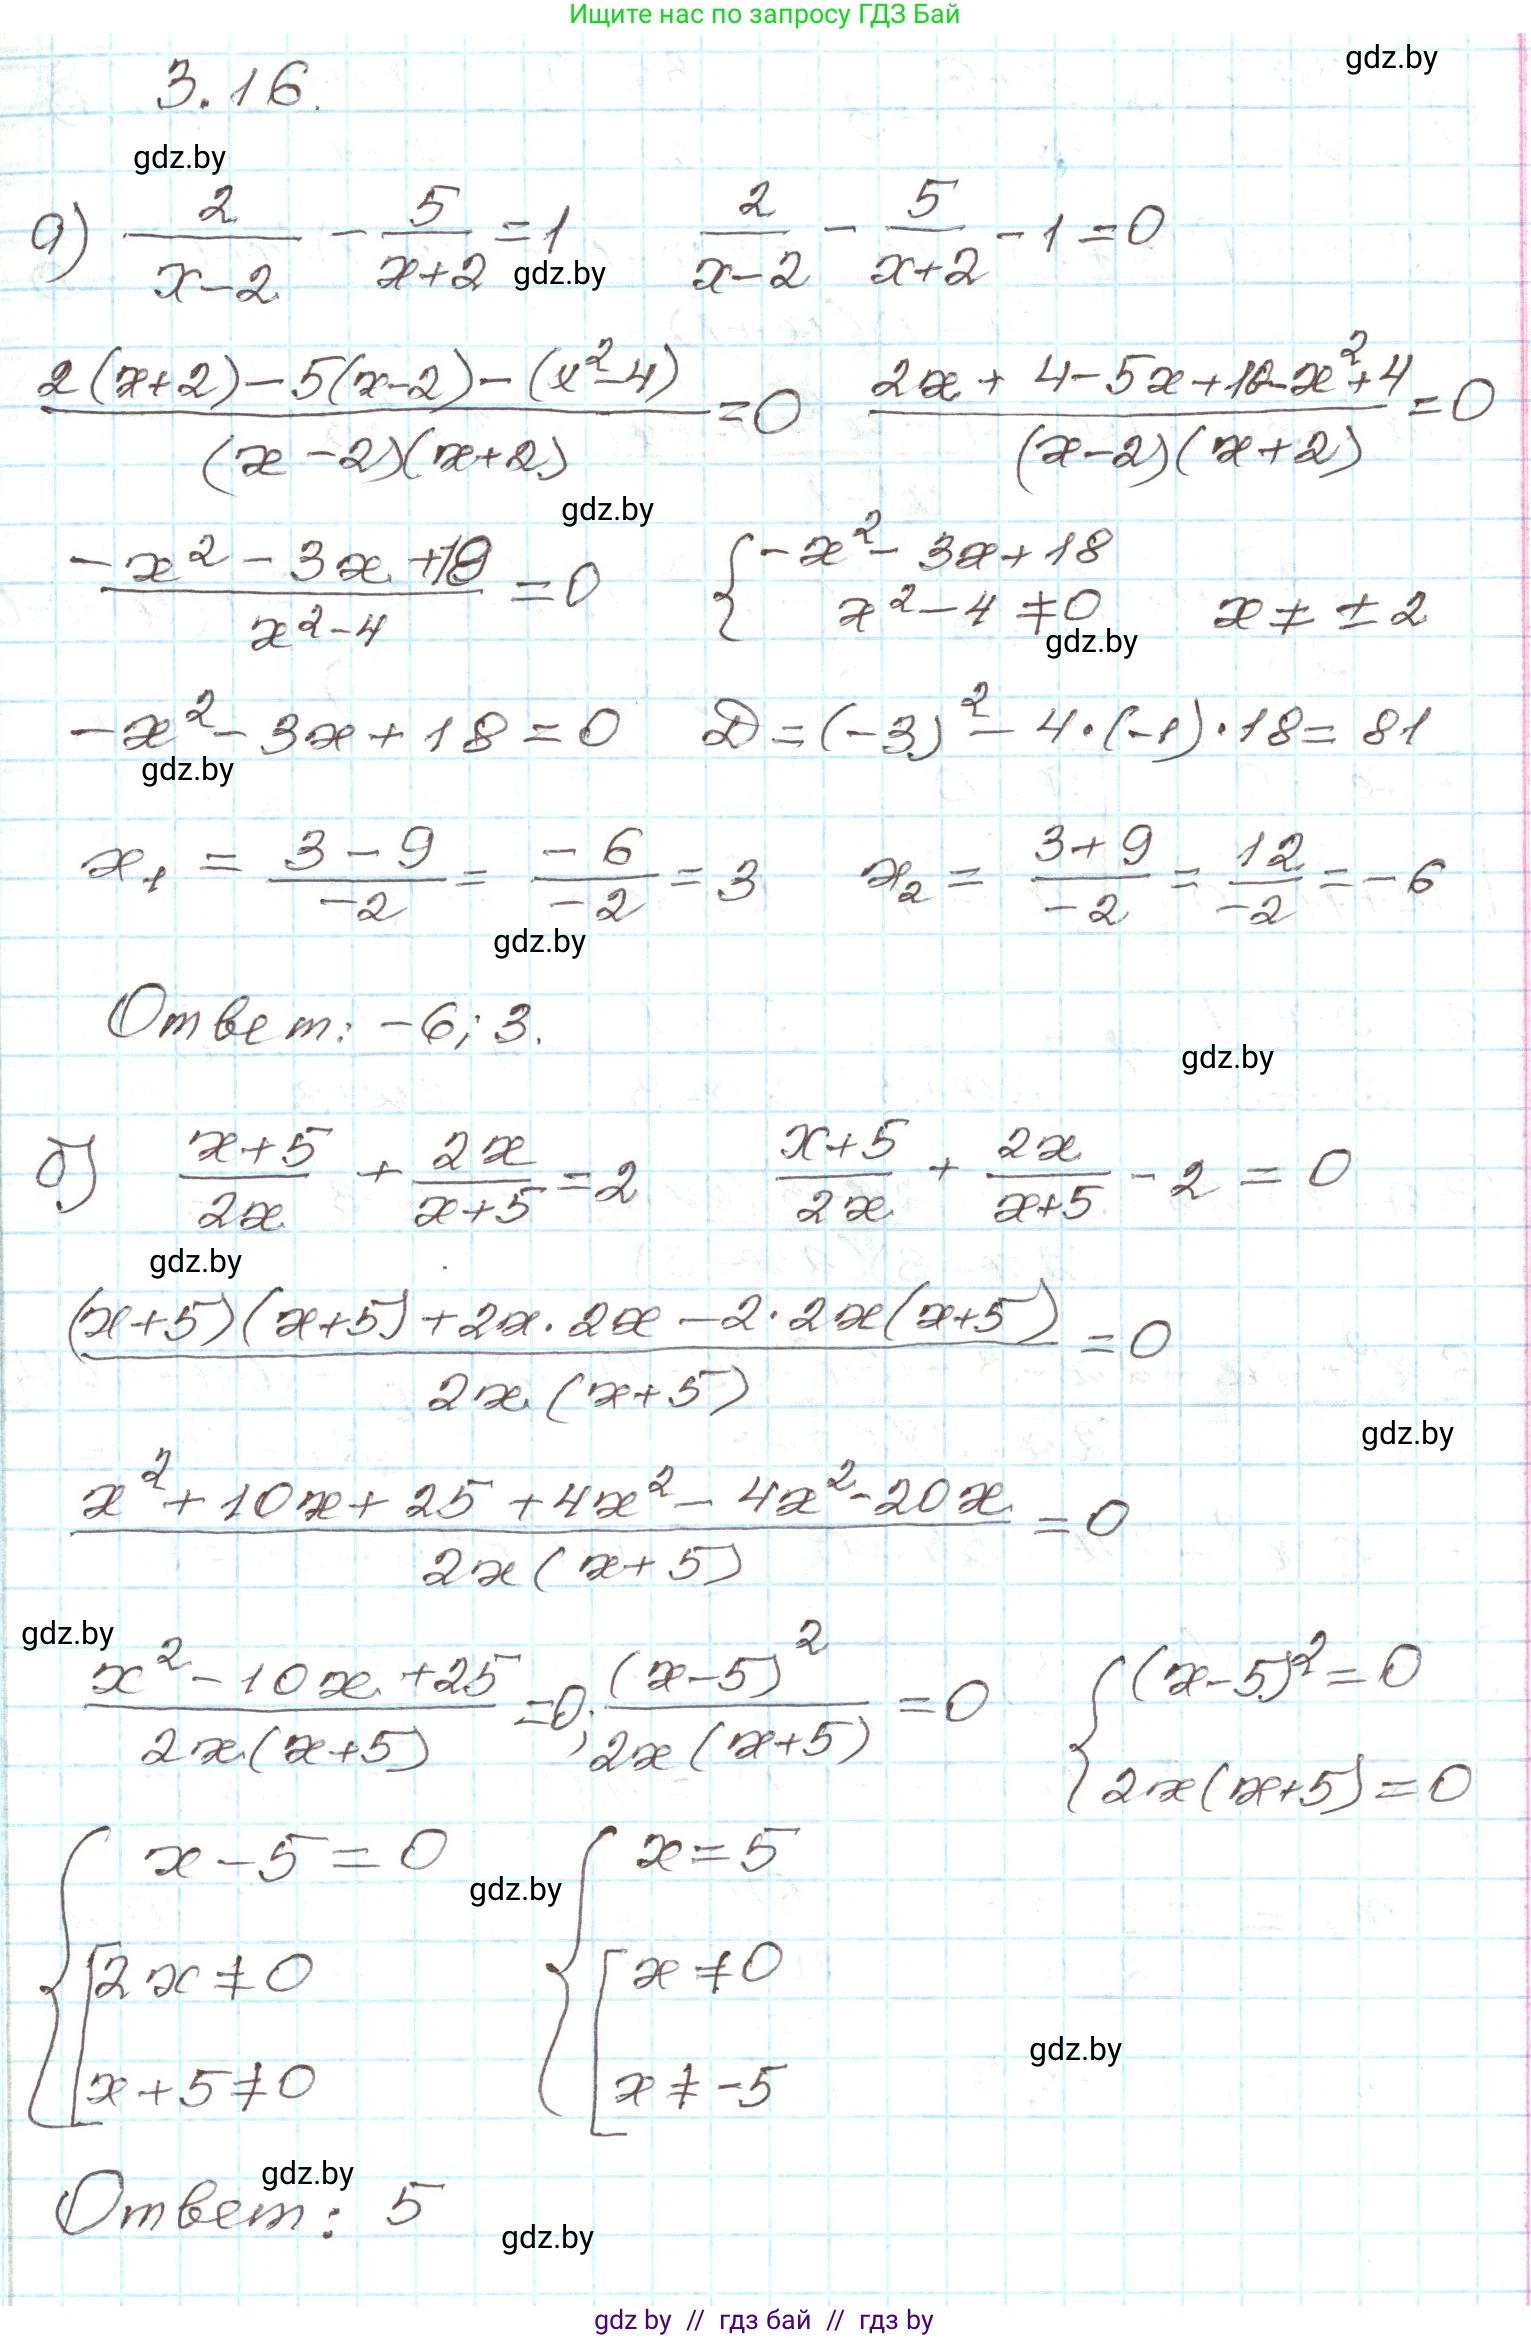 Ищите нас по запросу ГДЗ Бай
gdz.by
3.16.
gdz.by
а) 2/(x-2) - 5/(x+2) = 1   2/(x-2) - 5/(x+2) - 1 = 0
gdz.by
(2(x+2) - 5(x-2) - (x²-4))/((x-2)(x+2)) = 0   (2x + 4 - 5x + 10 - x² + 4)/((x-2)(x+2)) = 0
gdz.by
(-x² - 3x + 18)/(x²-4) = 0   { -x² - 3x + 18
x² - 4 ≠ 0   x ≠ ± 2
gdz.by
-x² - 3x + 18 = 0   D = (-3)² - 4·(-1)·18 = 81
gdz.by
x₁ = (3-9)/(-2) = (-6)/(-2) = 3   x₂ = (3+9)/(-2) = 12/(-2) = -6
gdz.by
Ответ: -6; 3.
gdz.by
б) (x+5)/(2x) + (2x)/(x+5) = 2   (x+5)/(2x) + (2x)/(x+5) - 2 = 0
gdz.by
((x+5)(x+5) + 2x·2x - 2·2x(x+5))/(2x(x+5)) = 0
gdz.by
(x² + 10x + 25 + 4x² - 4x² - 20x)/(2x(x+5)) = 0
gdz.by
(x² - 10x + 25)/(2x(x+5)) = 0; (x-5)²/(2x(x+5)) = 0   { (x-5)² = 0
2x(x+5) = 0
{ x - 5 = 0   { x = 5
gdz.by
[ 2x ≠ 0   [ x ≠ 0
gdz.by
x + 5 ≠ 0   x ≠ -5
gdz.by
Ответ: 5
gdz.by
gdz by // гдз бай // гдз by